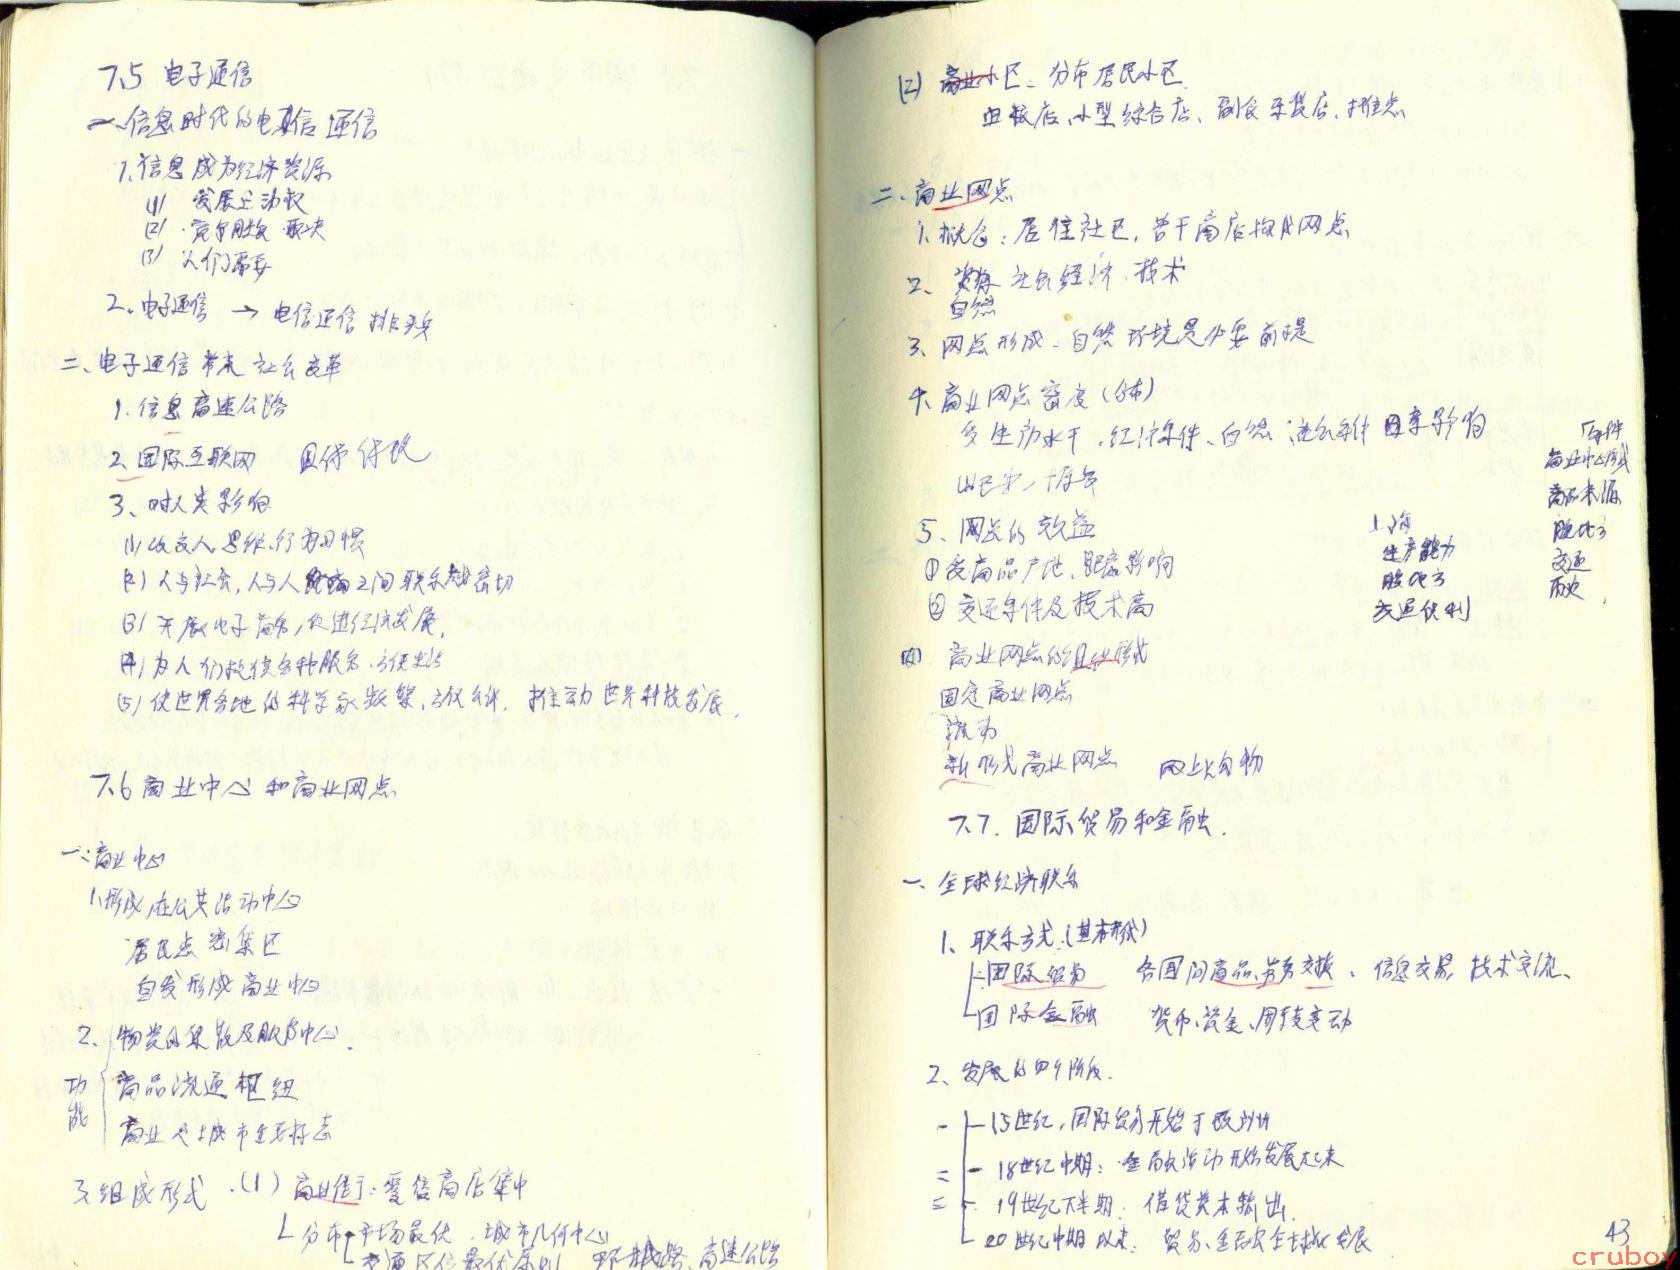 7.5 电子通信
一、信息时代的电信通信
1、信息成为经济资源
(1) 发展主动权
(2) 竞争胜败 取决
(3) 人们需要
2、电子通信 → 电信通信
二、电子通信带来社会变革
1、信息高速公路
2、国际互联网
3、对人类影响
(1) 改变人思维、行为习惯
(2) 人与社会,人与人之间联系越密切
(3) 开展电子商务,促进经济发展,
(4) 为人们提供各种服务、方便生活
(5) 使世界各地的科学家 推动世界科技发展.
7.6 商业中心和商业网点
一、商业中心
1、形成,在公共活动中心
居民点密集区
自发形成商业中心
2、物资的集散及服务中心.
功能
商品流通枢纽
商业是城市重要标志
3、组成形式 (1) 商业街: 零售商店集中
分布 市场最优 城市几何中心
交通区位最优原则 环城路、高速公路
(2) 商业小区: 分布居民小区.
小型综合店、副食
二、商业网点
1、概念: 居住社区, 若干商店构成网点
2、资源 社会经济、技术
自然
3、网点形成 自然环境是必要前提
4、商业网点密度 (分布)
受 水平、经济条件、自然、社会条件 因素影响
5、网点的效益
① 受商品产地、距离影响
② 交通条件及技术高
四. 商业网点的组织形式
固定商业网点
流动
新形式商业网点 网上购物
上海
生产能力
腹地大
交通便利
条件
商业中心形成
商品来源
腹地
交通
历史
7.7. 国际贸易和金融.
一、全球经济联系
1、联系方式 (基本形式)
国际贸易 各国间商品、劳务交换、信息交易、技术交流、
国际金融 货币、资金、周转变动
2、发展的四个阶段.
一 15世纪, 国际贸易开始于欧洲
二 18世纪中期: 金融活动开始发展起来
三 19世纪下半期: 借贷资本输出.
20世纪中期以来: 贸易、金融全球化发展
43
cruboy